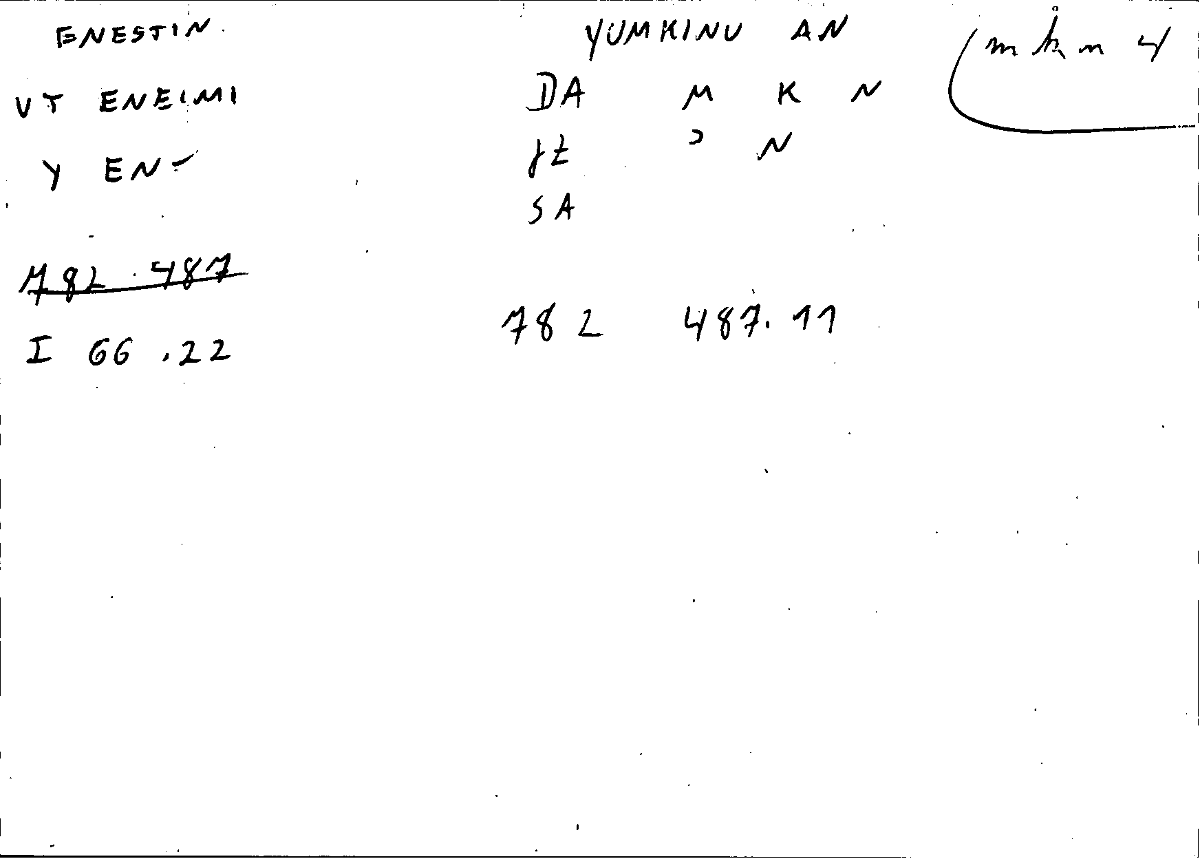 ENESTIN YUMKINU AN mkn 4
VT ENEIMI DA M K N
Y EN- ɔ N
SA
782.487
782 487.11
I 66.22